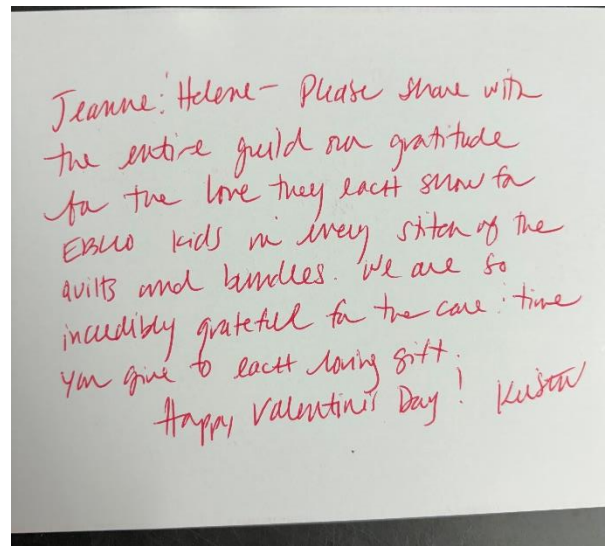 Jeanne : Helene - Please share with
the entire guild our gratitude
for the love they each show for
kids in every stitch of the
quilts and bundles. We are so
incredibly grateful for the care : time
you give to each loving gift.
Happy Valentine's Day!